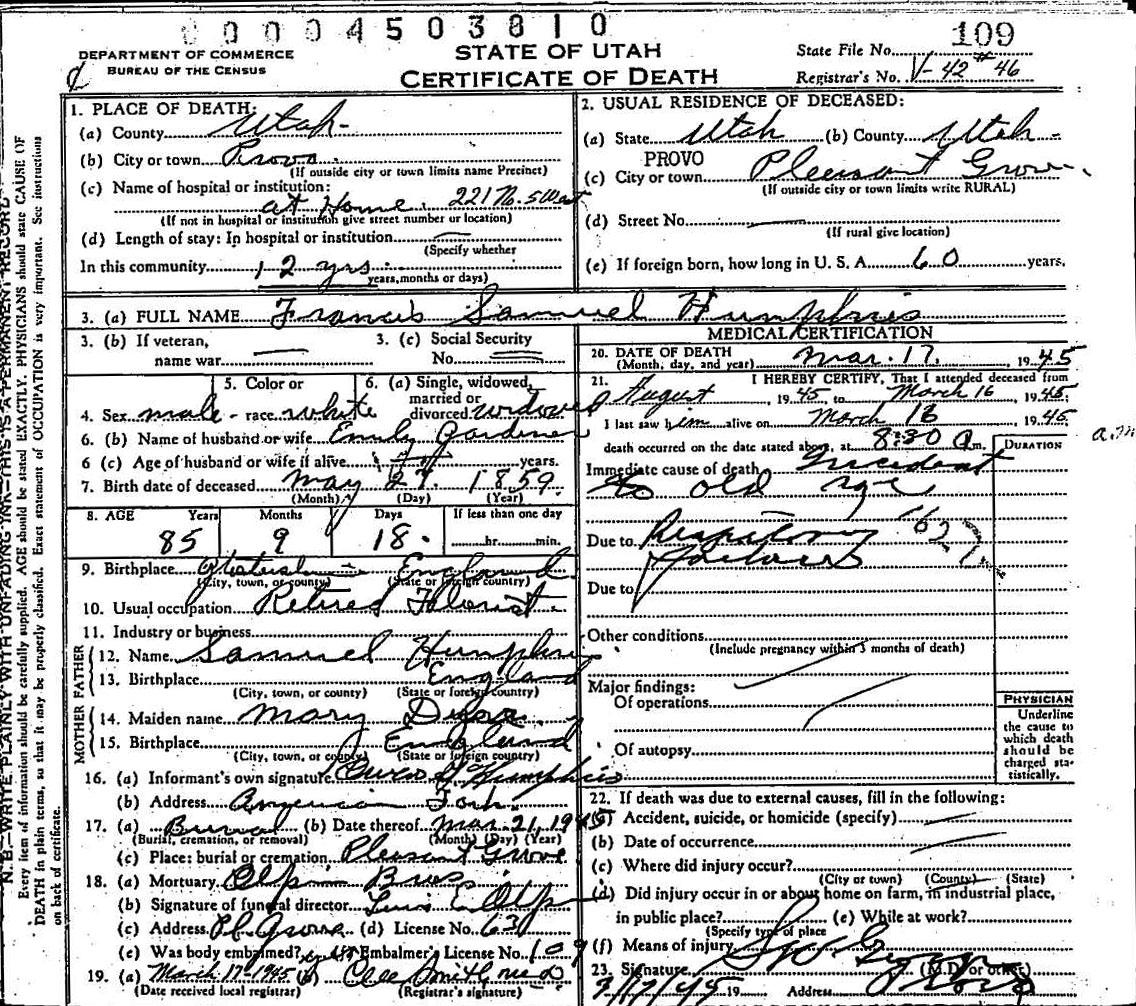 0 0 0 0 4 5 0 3 8 1 0
DEPARTMENT OF COMMERCE
BUREAU OF THE CENSUS
STATE OF UTAH
CERTIFICATE OF DEATH
State File No. 109
Registrar's No. V-42 #46
N. B.—WRITE PLAINLY WITH UNFADING INK—THIS IS A PERMANENT RECORD
Every item of information should be carefully supplied. AGE should be stated EXACTLY. PHYSICIANS should state CAUSE OF
DEATH in plain terms, so that it may be properly classified. Exact statement of OCCUPATION is very important. See instructions
on back of certificate.
1. PLACE OF DEATH:
(a) County Utah
(b) City or town Provo
(If outside city or town limits name Precinct)
(c) Name of hospital or institution:
at Home. 221 N. 5 West
(If not in hospital or institution give street number or location)
(d) Length of stay: In hospital or institution
(Specify whether
In this community 12 yrs
years, months or days)
2. USUAL RESIDENCE OF DECEASED:
(a) State Utah (b) County Utah
PROVO
(c) City or town Pleasant Grove
(If outside city or town limits write RURAL)
(d) Street No.
(If rural give location)
(e) If foreign born, how long in U. S. A. 60 years.
3. (a) FULL NAME Francis Samuel Humphries
3. (b) If veteran,
name war
3. (c) Social Security
No.
4. Sex male
5. Color or
race white
6. (a) Single, widowed,
married or
divorced widowed
6. (b) Name of husband or wife Emily Gardiner
6 (c) Age of husband or wife if alive years.
7. Birth date of deceased May 27. 1859.
(Month) (Day) (Year)
8. AGE Years Months Days If less than one day
85 9 18. hr. min.
9. Birthplace England
(City, town, or county) (State or foreign country)
10. Usual occupation Retired Florist
11. Industry or business
FATHER
12. Name Samuel Humphries
13. Birthplace England
(City, town, or county) (State or foreign country)
MOTHER
14. Maiden name Mary
15. Birthplace England
(City, town, or county) (State or foreign country)
16. (a) Informant's own signature Humphries
(b) Address American Fork
17. (a) Burial (b) Date thereof Mar. 21, 1945
(Burial, cremation, or removal) (Month) (Day) (Year)
(c) Place: burial or cremation Pleasant Grove
18. (a) Mortuary Olpin Bros
(b) Signature of funeral director E. Olpin
(c) Address Pl. Grove (d) License No. 630
(e) Was body embalmed? yes Embalmer's License No. 109
19. (a) March 17-1945 (b) Smith
(Date received local registrar) (Registrar's signature)
MEDICAL CERTIFICATION
20. DATE OF DEATH Mar. 17, 1945
(Month, day, and year)
21. I HEREBY CERTIFY, That I attended deceased from
August, 1945, to March 16, 1945;
I last saw him alive on March 16, 1945;
death occurred on the date stated above, at 8:30 a.m.
a.m
DURATION
Immediate cause of death Incident
to old age
Due to Respiratory
failure
162
Due to
Other conditions
(Include pregnancy within 3 months of death)
Major findings:
Of operations
Of autopsy
PHYSICIAN
Underline
the cause to
which death
should be
charged sta-
tistically.
22. If death was due to external causes, fill in the following:
(a) Accident, suicide, or homicide (specify)
(b) Date of occurrence
(c) Where did injury occur?
(City or town) (County) (State)
(d) Did injury occur in or about home on farm, in industrial place,
in public place? (e) While at work?
(Specify type of place
(f) Means of injury
23. Signature (M.D. or other)
3/17/45 19 Address Provo